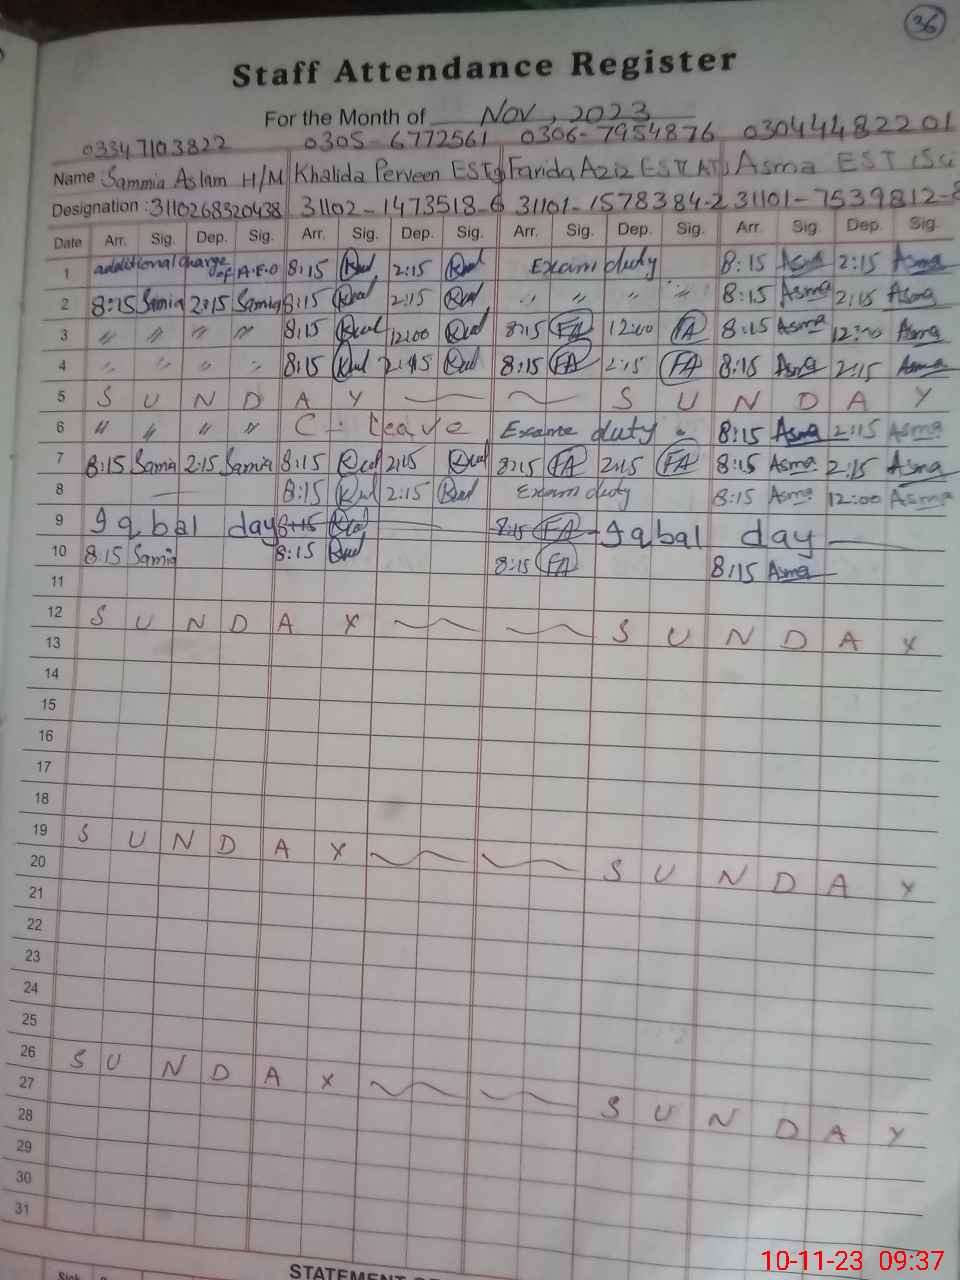 36
Staff Attendance Register
For the Month of Nov, 2023
03347103822 0305-6772561 0306-7954876 03044482201
Name : Sammia Aslam H/M Khalida Perveen EST Farida Aziz EST(AT) Asma EST (Sci
Designation : 3110268320438 31102-1473518-6 31101-1578384-2 31101-7539812-8
Date Arr. Sig. Dep. Sig. Arr. Sig. Dep. Sig. Arr. Sig. Dep. Sig. Arr. Sig. Dep. Sig.
1 additional charge of A.E.O 8:15 2:15 Exam duty 8:15 Asma 2:15 Asma
2 8:15 Samia 2:15 Samia 8:15 2:15 " " " " 8:15 Asma 2:15 Asma
3 " " " " 8:15 12:00 8:15 FA 12:00 FA 8:15 Asma 12:00 Asma
4 " " " " 8:15 2:15 8:15 FA 2:15 FA 8:15 Asma 2:15 Asma
5 S U N D A Y S U N D A Y
6 " " " " C - Leave Exame duty 8:15 Asma 2:15 Asma
7 8:15 Samia 2:15 Samia 8:15 2:15 8:15 FA 2:15 FA 8:15 Asma 2:15 Asma
8 — 8:15 2:15 Exam duty 8:15 Asma 12:00 Asma
9 Iqbal day 8:15 8:15 FA - Iqbal day —
10 8:15 Samia 8:15 8:15 FA 8:15 Asma
11
12 S U N D A Y S U N D A Y
13
14
15
16
17
18
19 S U N D A Y S U N D A Y
20
21
22
23
24
25
26 S U N D A Y S U N D A Y
27
28
29
30
31
STATEMENT
10-11-23 09:37